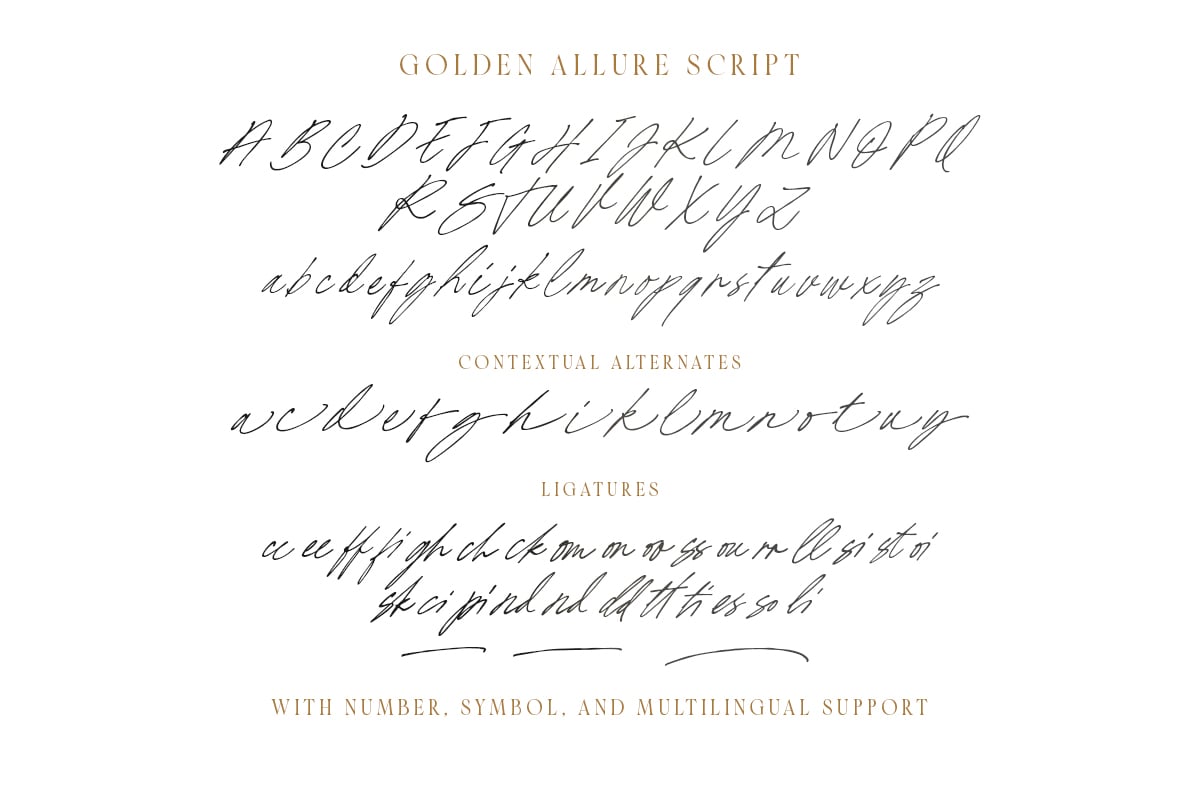 GOLDEN ALLURE SCRIPT
A B C D E F G H I J K L M N O P Q
R S T U V W X Y Z
a b c d e f g h i j k l m n o p q r s t u v w x y z
CONTEXTUAL ALTERNATES
a c d e f g h i k l m n o t u y
LIGATURES
cc ee ff fi gh ch ck om on oo ss ou rr ll si st oi
sk ci pi nd nd dd tt ti es so li
WITH NUMBER, SYMBOL, AND MULTILINGUAL SUPPORT